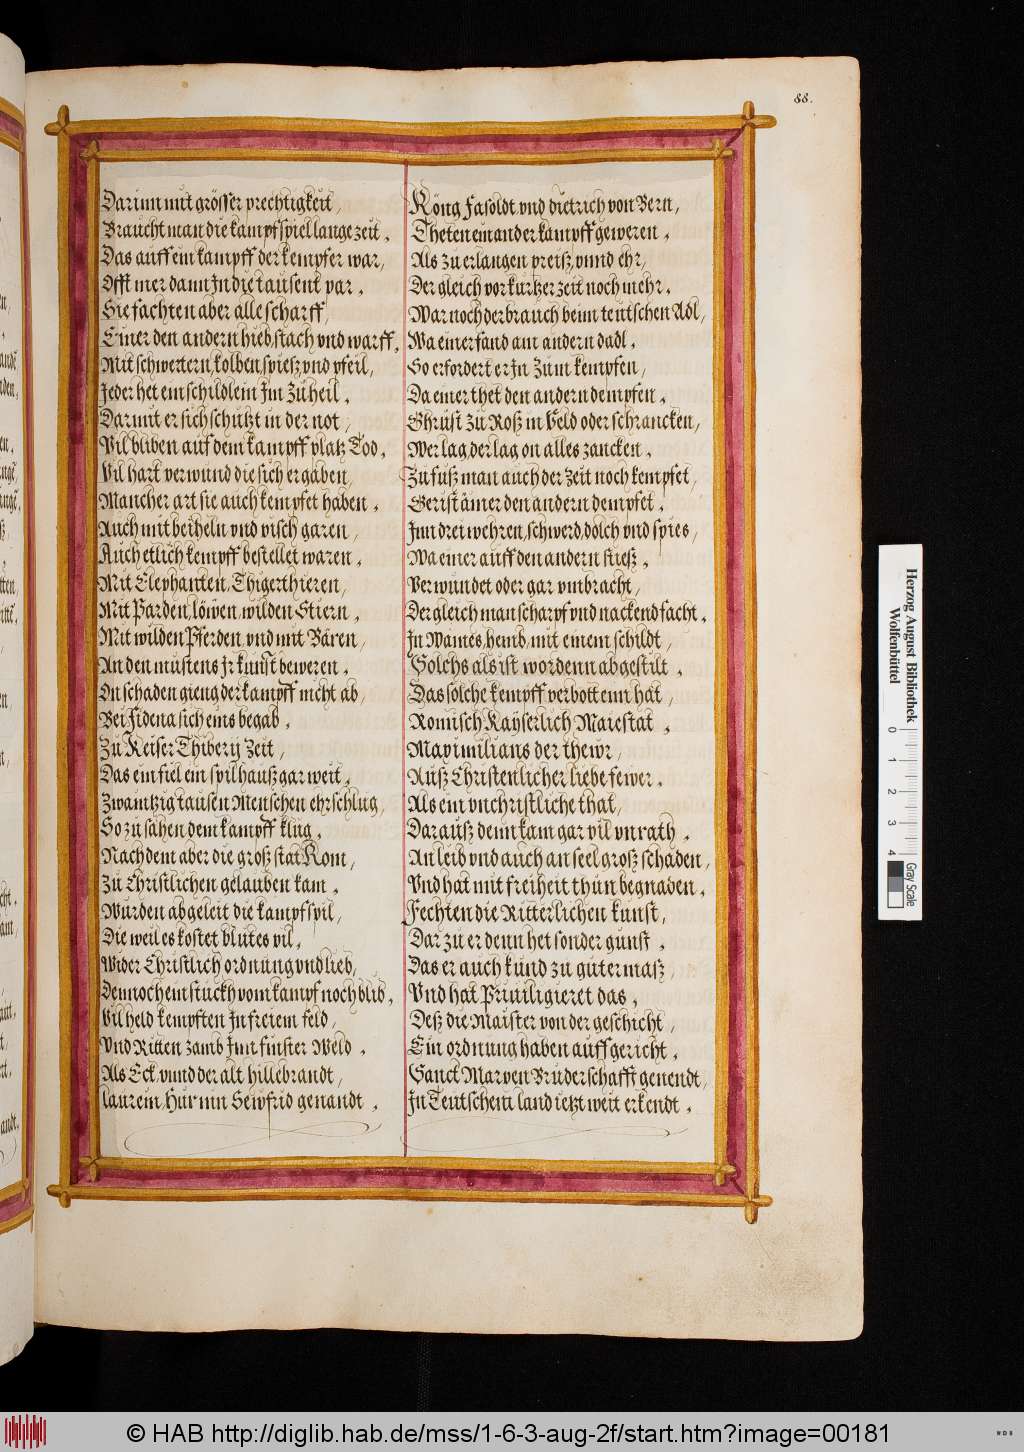 88.
Darinn mit grösser prechtigkeit,
Braucht man die kampfspiel lange zeit.
Das auff ein kampff der kempfer war,
Offt mer dann in die tausent par.
Sie fachten aber alle scharff,
Einer den andern hieb, stach vnd warff.
Mit schwertern, kolben, spieß, vnd pfeil,
Jeder het ein schildlein Im zu heil.
Darmit er sich schützt in der not,
Vil bliben auf dem kampff platz Tod.
Vil hart verwund die sich ergaben,
Mancher art sie auch kempfet haben.
Auch mit beiheln vnd visch garen,
Auch etlich kempff bestellet waren.
Mit Elephanten, Thigerthieren,
Mit Parden, löwen, wilden Stiern.
Mit wilden Pferden, vnd mit Bären,
An den mustens Jr kunst beweren.
On schaden gieng der kampff nicht ab,
Bei Fidena sich eins begab.
Zu Keiser Thiberÿ Zeit,
Das ein fiel ein spilhauß gar weit.
Zwaintzig tausen Menschen ehrschlug,
So zu sahen dem kampff klug.
Nachdem aber die groß stat Rom,
Zu Christlichen gelauben kam.
Wurden abgeleit die kampfspil,
Die weil es kostet blutes vil.
Wider Christlich ordnung vnd lieb,
Dennoch ein stuckh vom kampf noch blib.
Vil held kempften In freiem feld,
Vnd Ritten zamb Inn finster Weld.
Als Eck, vnnd der alt hillebrandt,
Laurein, Hürnin Sewfrid genandt.
Köng Fasoldt vnd dietrich von Bern,
Theten einander kampff geweren.
Als zu erlangen preiß, vnnd ehr,
Der gleich vor kurtzer zeit noch mehr.
War noch der brauch beim teutschen Adl,
Wa einer fand am andern dadl.
So erfordert er Jn Zum kempfen,
Da einer thet den andern dempfen.
Ghrüst zu Roß in Veld oder schrancken,
Wer lag, der lag on alles zancken.
Zu fuß man auch der Zeit noch kempfet,
Gerist ainer den andern dempfet.
Inn drei wehren, schwerd, dolch vnd spies,
Wa einer auff den andern stieß.
Verwundet oder gar vmbracht,
Dergleich man scharpf vnd nackend facht.
In Wames, hemb, mit einem schildt,
Solchs als ist wordenn abgestilt.
Das solche kempff verbottenn hat,
Romisch Kayserlich Maiestat.
Maximilians der thewr,
Auß Christenlicher liebe fewer.
Als ein vnchristliche that,
Darauß denn kam gar vil vnrath.
An leib vnd auch an seel groß schaden,
Vnd hat mit freiheit thun begnaden.
Fechten die Ritterlichen kunst,
Dar zu er denn het sonder gunst.
Das er auch kund zu guter maß,
Vnd hat Priuiligieret das.
Deß die Maister von der geschicht,
Ein ordnung haben auffgericht.
Sanct Marxen Bruderschafft genendt,
In Teutschem land ietzt weit erkendt.
Herzog August Bibliothek
Wolfenbüttel
0 1 2 3 4
Gray Scale
© HAB http://diglib.hab.de/mss/1-6-3-aug-2f/start.htm?image=00181